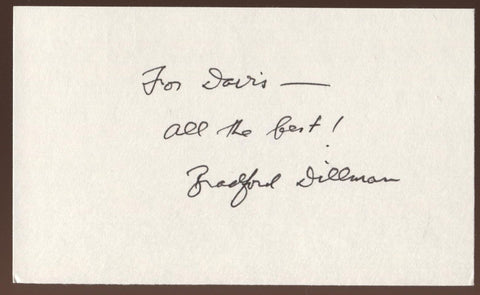 For Davis —
All the best!
Bradford Dillman